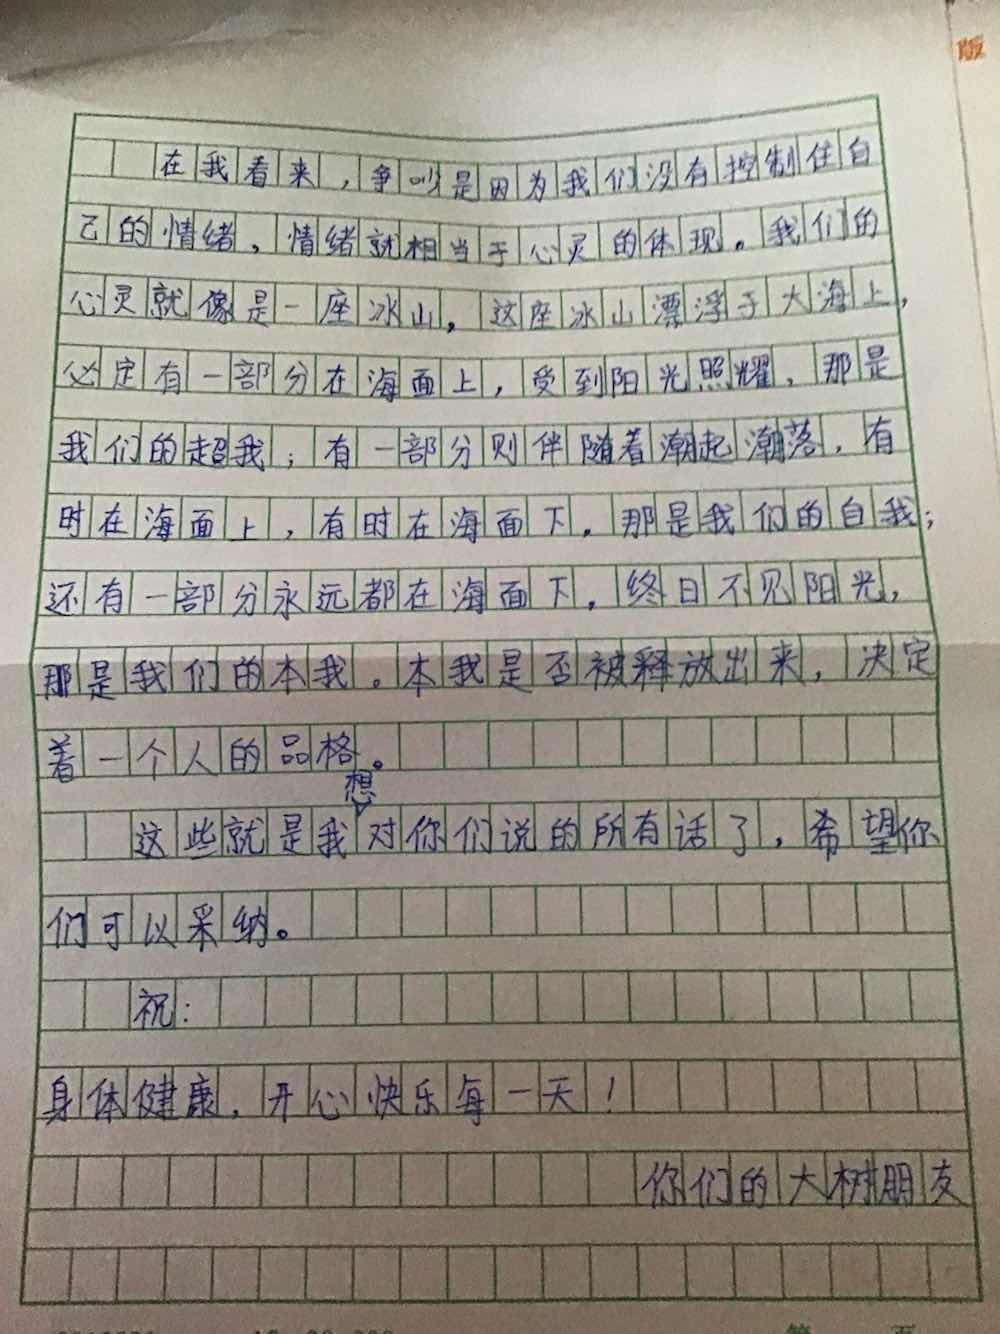 版
在我看来，争吵是因为我们没有控制住自
己的情绪，情绪就相当于心灵的体现。我们的
心灵就像是一座冰山，这座冰山漂浮于大海上，
必定有一部分在海面上，受到阳光照耀，那是
我们的超我；有一部分则伴随着潮起潮落，有
时在海面上，有时在海面下，那是我们的自我；
还有一部分永远都在海面下，终日不见阳光，
那是我们的本我。本我是否被释放出来，决定
着一个人的品格。
这些就是我想对你们说的所有话了，希望你
们可以采纳。
祝：
身体健康，开心快乐每一天！
你们的大树朋友